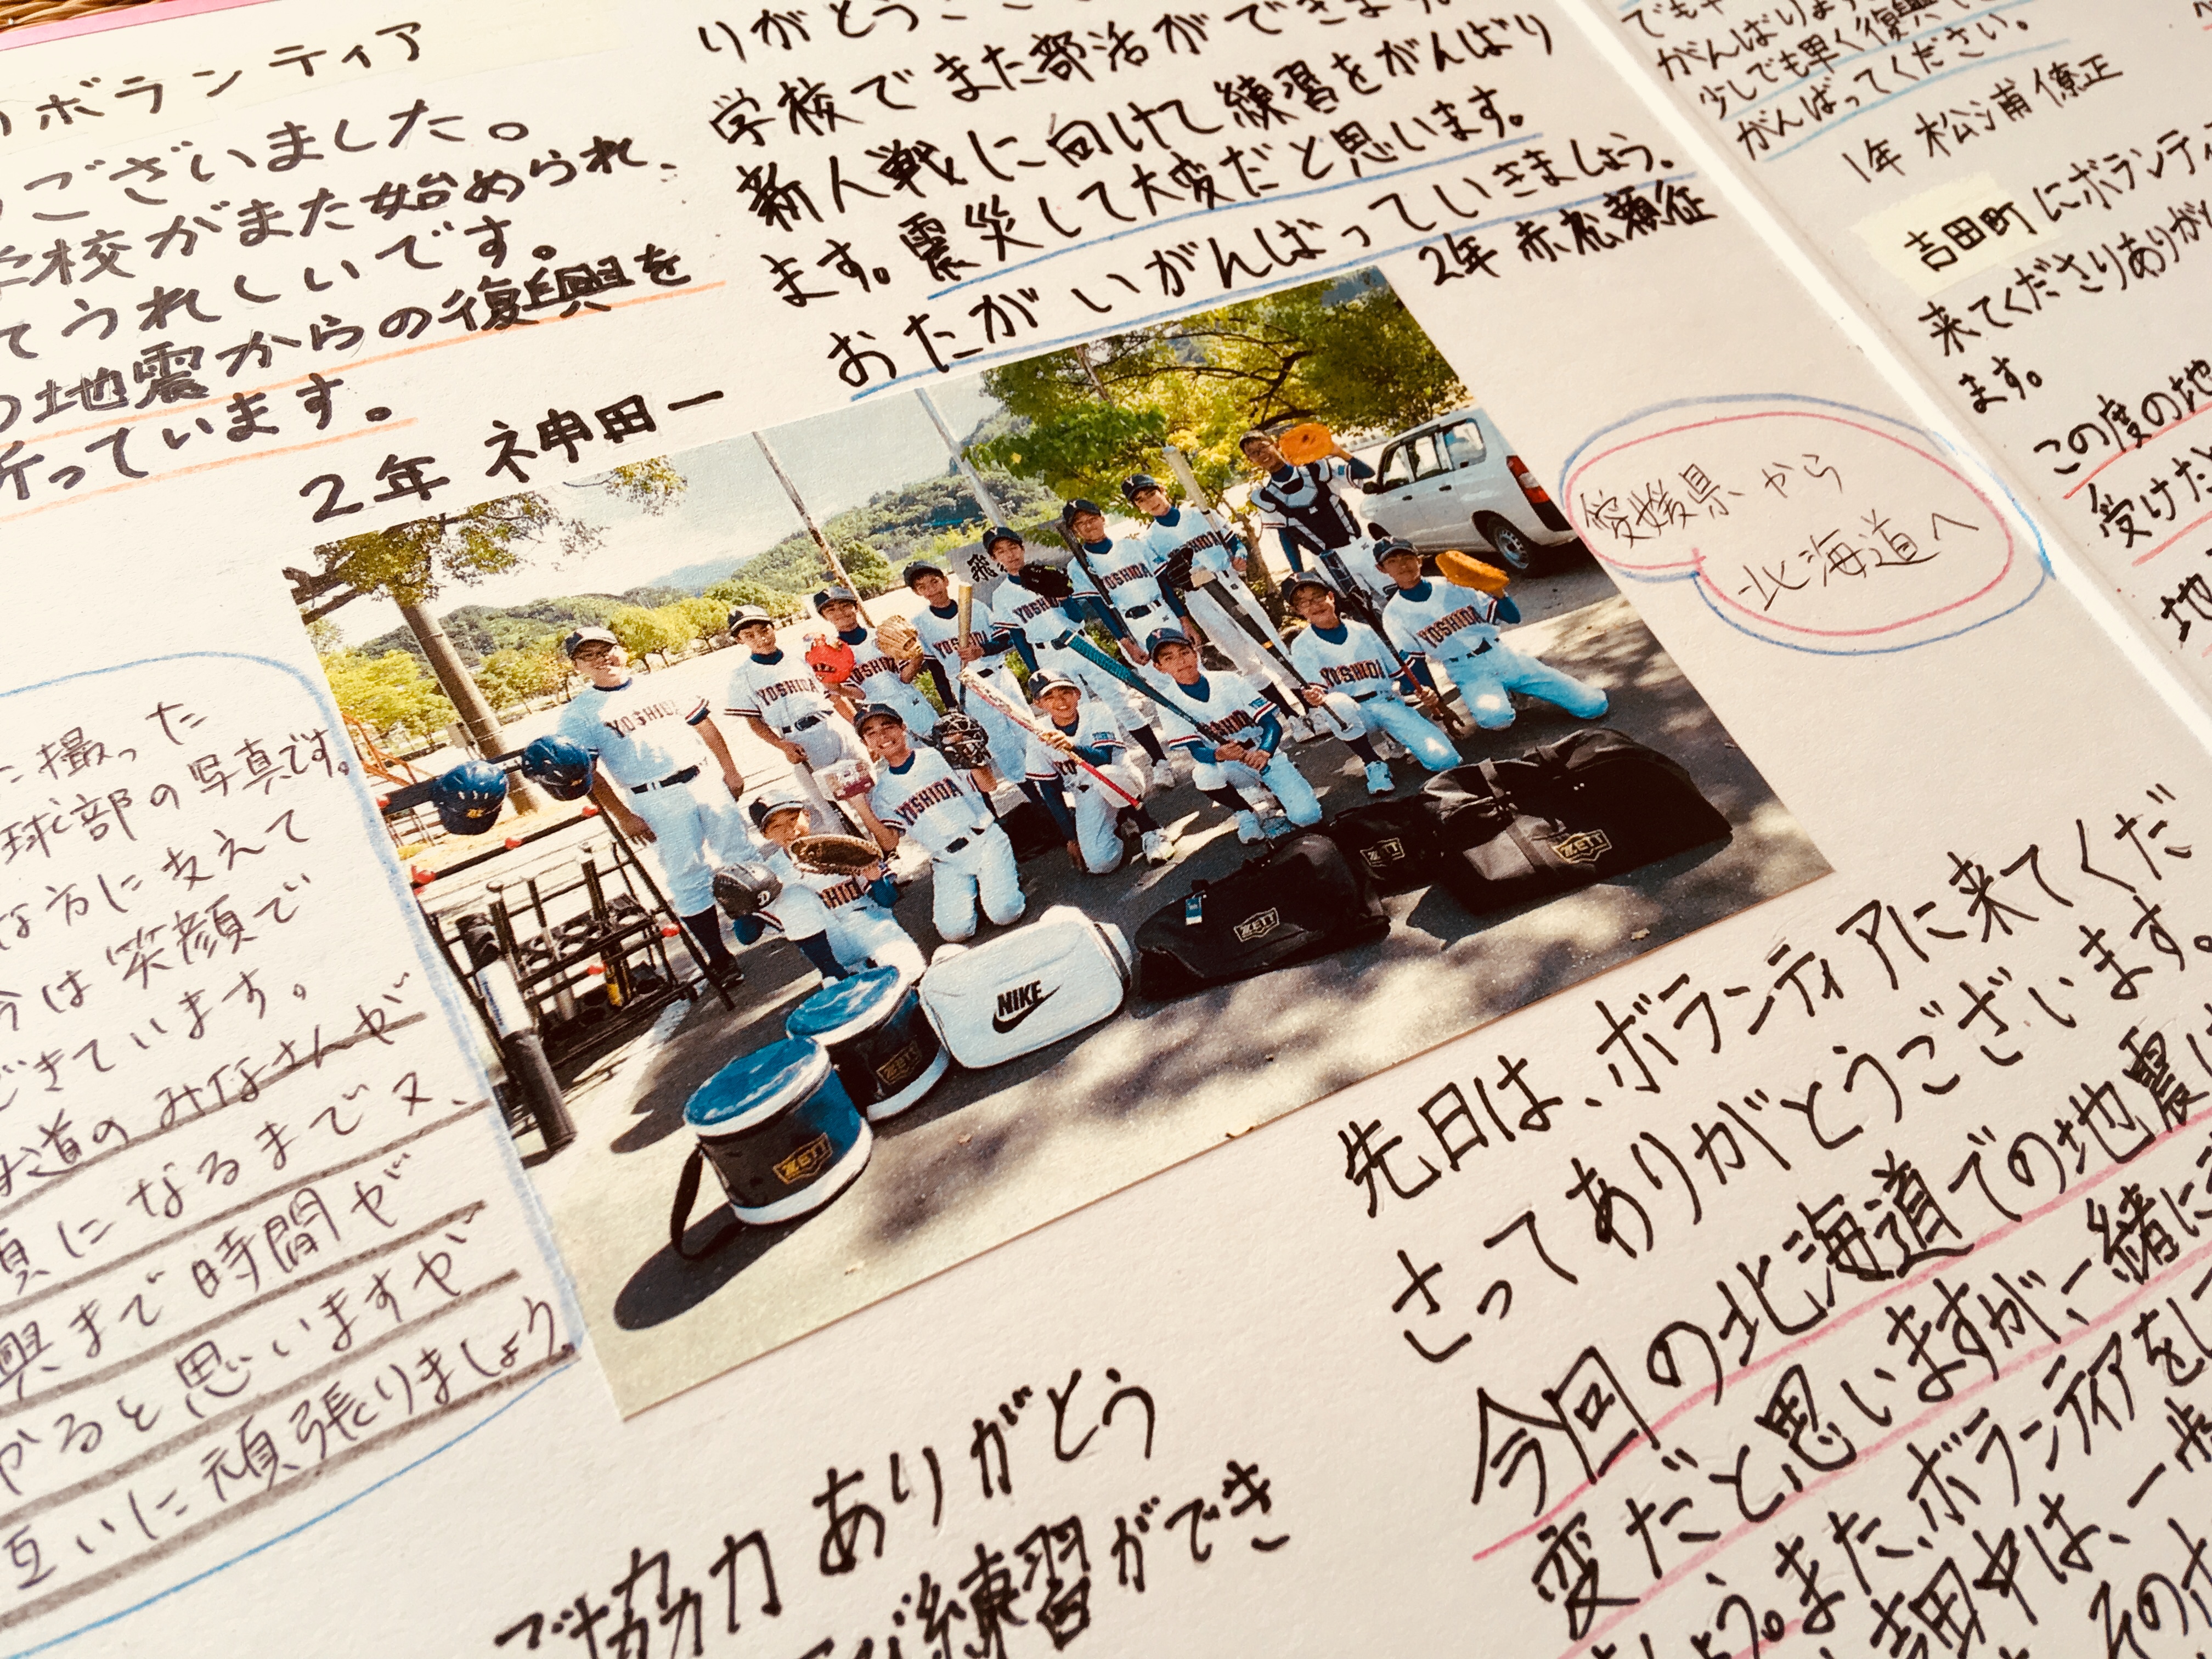 ボランティア
ございました。
学校がまた始められ、
てうれしいです。
地震からの復興を
祈っています。
2年 神田一
りがとうござ
学校でまた部活ができます。
新人戦に向けて練習をがんばり
ます。震災して大変だと思います。
おたがいがんばっていきましょう。
2年 赤松頼征
がんばります
少しでも早く復興
がんばってください。
1年 松浦僚正
吉田町にボランティ
来てくださりありが
ます。
この度の地
受けた
地
愛媛県から
北海道へ
に撮った
球部の写真です。
な方に支えて
今は笑顔で
できています。
道のみなさんが
顔になるまで又、
興まで時間が
かると思いますが
互いに頑張りましょう。
YOSHIDA
YOSHIDA
YOSHIDA
YOSHIDA
YOSHIDA
YOSHIDA
YOSHIDA
ZETT
ZETT
ZETT
NIKE
ZETT
ZETT
先日は、ボランティアに来てくだ
さってありがとうございます。
今回の北海道での地震
変だと思いますが、一緒に
しょう。また、ボランティアを
吉田中は、一歩
そのた
ご協力ありがとう
練習ができ